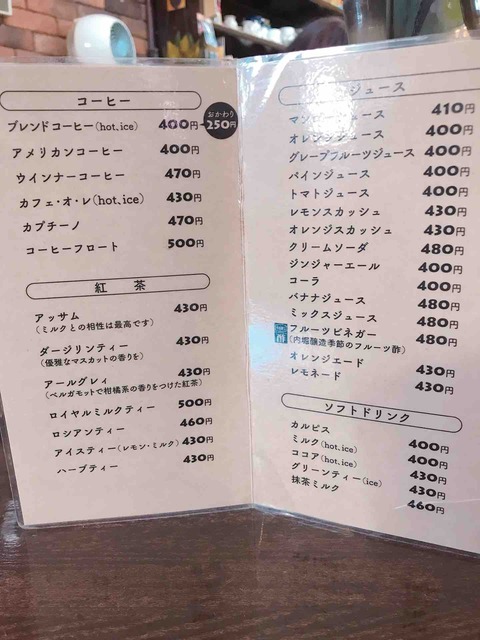 コーヒー
ブレンドコーヒー(hot,ice) 400円
おかわり
250円
アメリカンコーヒー 400円
ウインナーコーヒー 470円
カフェ・オ・レ(hot,ice) 430円
カプチーノ 470円
コーヒーフロート 500円
紅 茶
アッサム 430円
(ミルクとの相性は最高です)
ダージリンティー 430円
(優雅なマスカットの香りを)
アールグレィ 430円
(ベルガモットで柑橘系の香りをつけた紅茶)
ロイヤルミルクティー 500円
ロシアンティー 460円
アイスティー(レモン・ミルク) 430円
ハーブティー 430円
ジュース
ジュース 410円
オレンジジュース 400円
グレープフルーツジュース 400円
パインジュース 400円
トマトジュース 400円
レモンスカッシュ 430円
オレンジスカッシュ 430円
クリームソーダ 480円
ジンジャーエール 400円
コーラ 400円
バナナジュース 480円
ミックスジュース 480円
フルーツビネガー 480円
(内堀醸造季節のフルーツ酢)
オレンジエード 430円
レモネード 430円
ソフトドリンク
カルピス 400円
ミルク(hot,ice) 400円
ココア(hot,ice) 430円
グリーンティー(ice) 430円
抹茶ミルク 460円